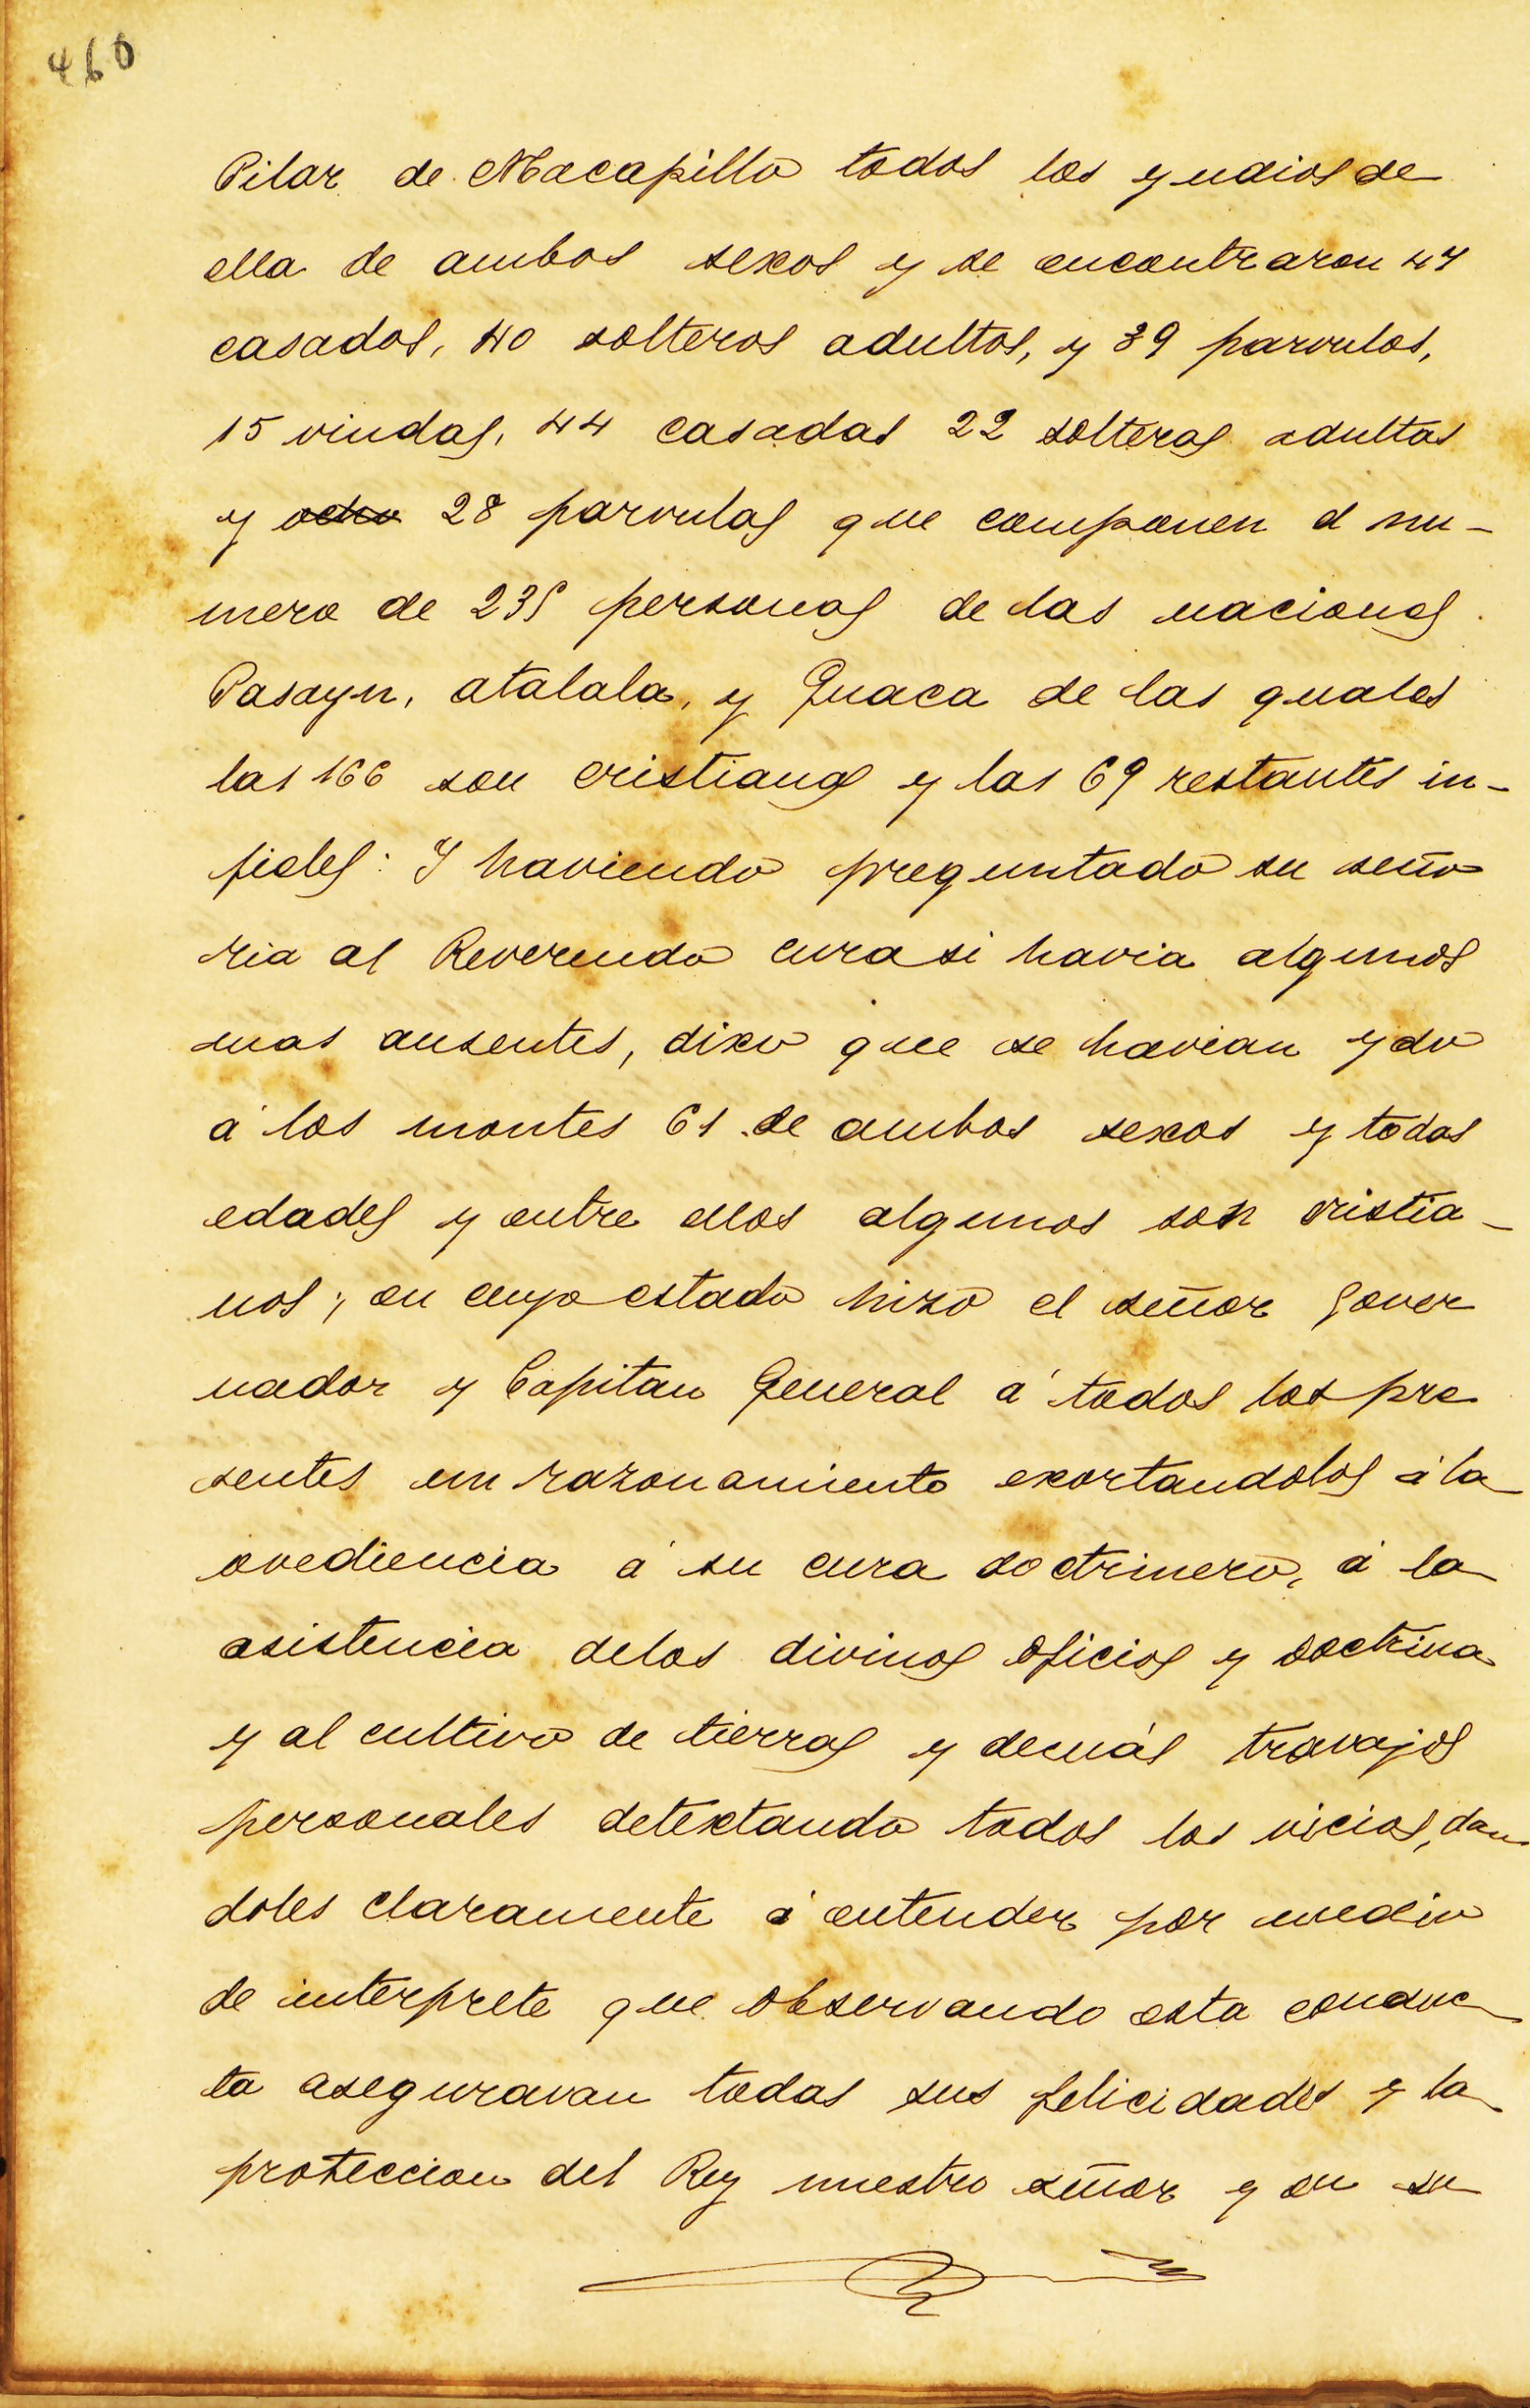 460
Pilar de Macapillo todos los yndios de
ella de ambos sexos y se encontraron 47
casados, 40 solteros adultos, y 39 parvulos,
15 viudas, 44 casadas 22 solteras adultas
y ocho 28 parvulas que componen el nu-
mero de 235 personas de las naciones
Pasayn, atalala, y Guaca de las quales
las 166 son cristianas y las 69 restantes in-
fieles: Y haviendo preguntado su seño
ria al Reverendo cura si havia algunos
mas ausentes, dixo que se havian ydo
á los montes 61 de ambos sexos y todas
edades y entre ellos algunos son cristia-
nos; en cuyo estado hizo el señor Gover
nador y Capitan General á todos los pre
sentes un razonamiento exortandolos á la
ovediencia á su cura doctrinero, á la
asistencia delos divinos oficios y doctrina
y al cultivo de tierras y demás travajos
personales detextando todos los vicios, dan
doles claramente á entender por medio
de interprete que observando esta conduc
ta aseguravan todas sus felicidades y la
proteccion del Rey nuestro señor y en su